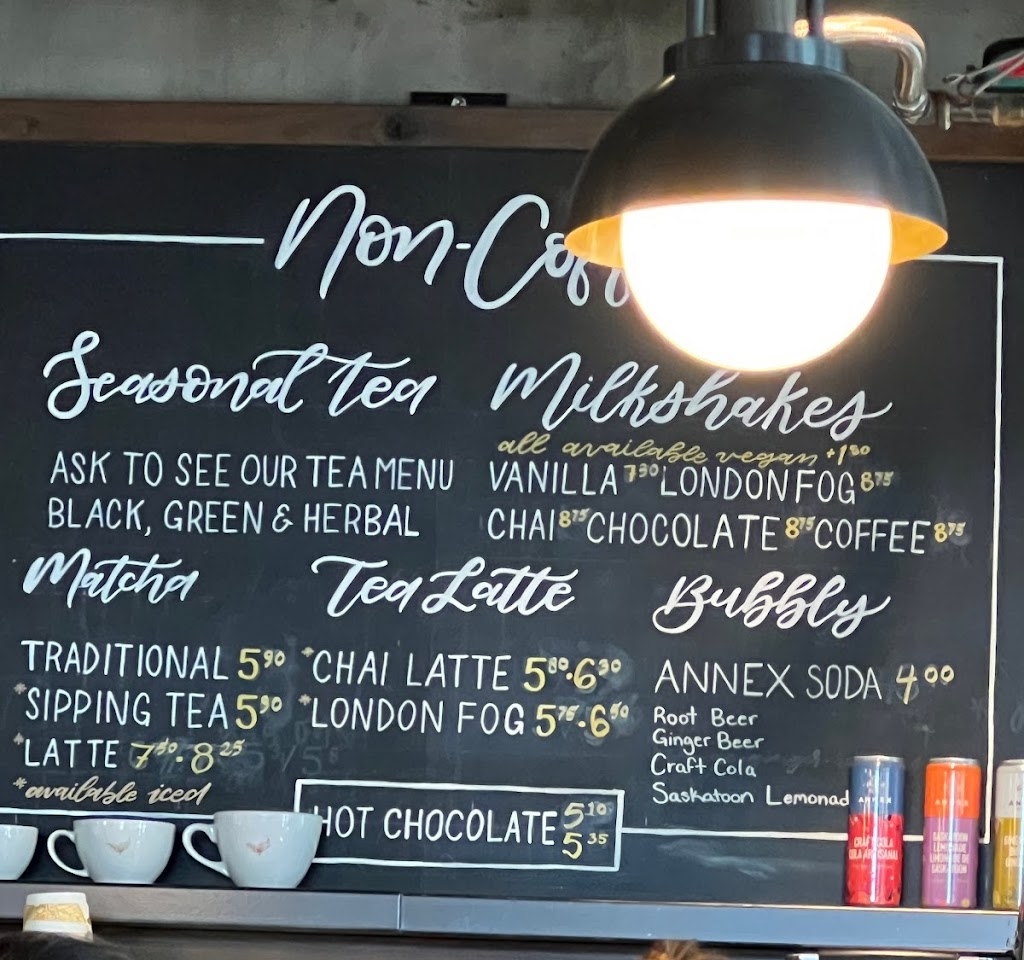 Non-Cof
Seasonal Tea
ASK TO SEE OUR TEA MENU
BLACK, GREEN & HERBAL
Milkshakes
all available vegan +1.50
VANILLA 7.90 LONDON FOG 8.75
CHAI 8.75 CHOCOLATE 8.75 COFFEE 8.75
Matcha
TRADITIONAL 5.90
*SIPPING TEA 5.90
*LATTE 7.50 · 8.25
*available iced
Tea Latte
*CHAI LATTE 5.80 · 6.30
*LONDON FOG 5.75 · 6.50
HOT CHOCOLATE 5.10
5.35
Bubbly
ANNEX SODA 4.00
Root Beer
Ginger Beer
Craft Cola
Saskatoon Lemonad
ANNEX
CRAFT COLA
COLA ARTISANAL
ANNEX
SASKATOON
LEMONADE
LIMONADE DE
SASKATOON